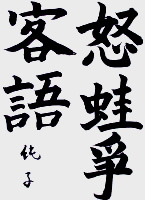 怒蛙爭
客語
純子